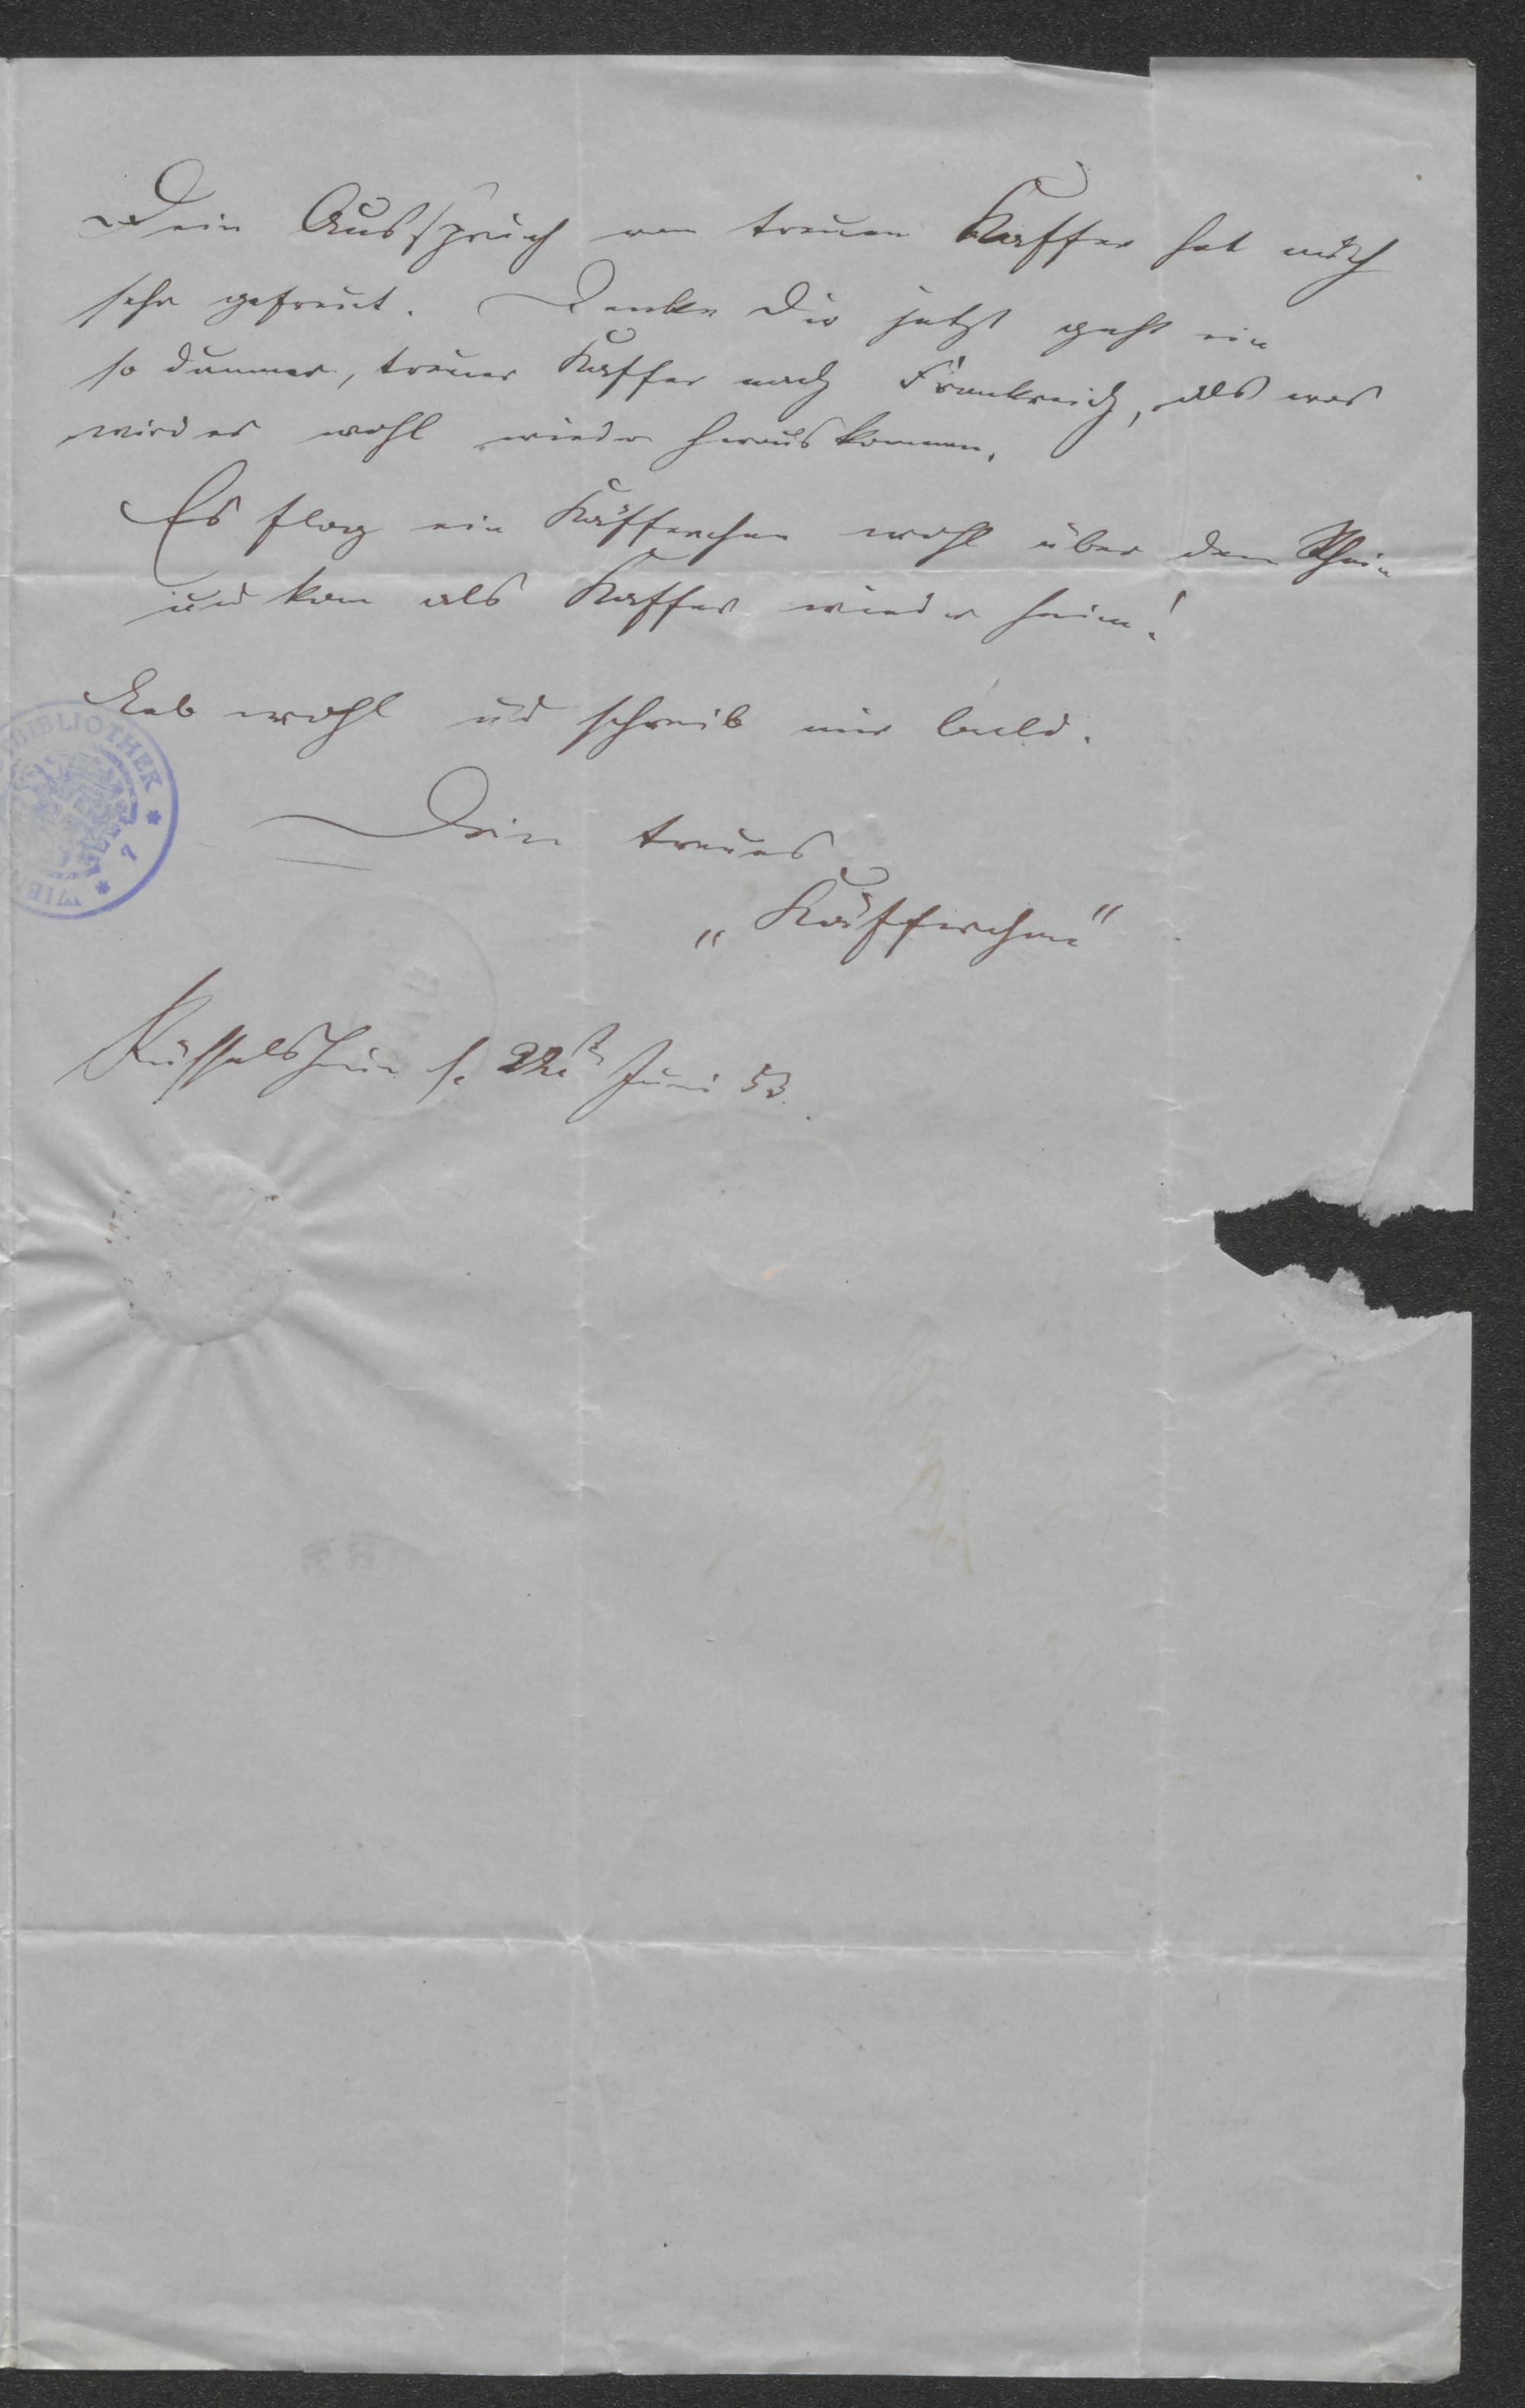 Dein Ausspruch vom treuen Kaffer hat mich
sehr gefreut. Denke Dir jetzt geht ein
so dummer, treuer Kaffer nach Frankreich, als was
wird er wohl wieder herauskommen.
Es flog ein Käfferchen wohl über den Rhein
und kam als Kaffer wieder heim!
Leb wohl und schreib mir bald.
Dein treues
„Käfferchen“
Rüsselsheim d. 22t Juni 53.
BIBLIOTHEK
WIEN